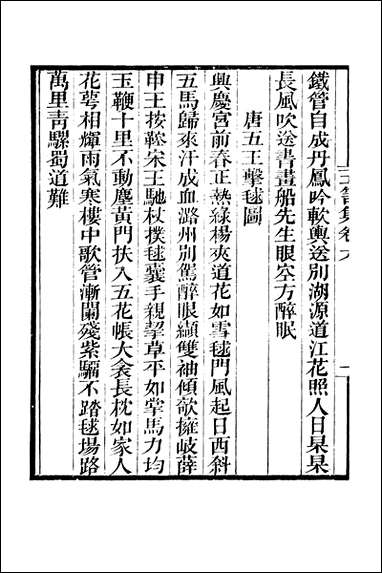 鐵管自成丹鳳吟軟輿送別湖源道江花照人日杲杲
長風吹送書畫船先生眼空方醉眠
唐五王擊毬圖
興慶宮前春正熱綠楊夾道花如雪毬門風起日西斜
五馬歸來汗成血潞州別駕醉眼纈雙袖傾欹擁岐薛
申王按轡宋王馳杖撲毬囊手親挈草平如掌馬力均
玉鞭十里不動塵黃門扶入五花帳大衾長枕如家人
花萼相輝雨氣寒樓中歌管漸闌殘紫騮不踏毬場路
萬里青騾蜀道難
玉笥集卷九
一